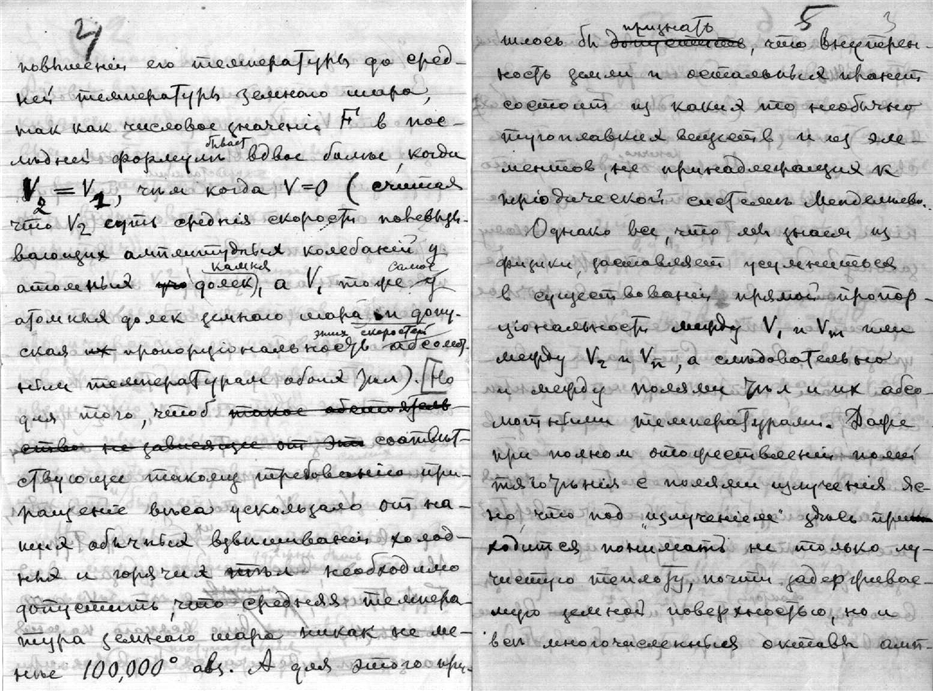 4
повышеніи его температуры до сред-
ней температуры земного шара,
такъ какъ числовое значеніе F въ пос-
бываетъ
лѣдней формулѣ вдвое болѣе, когда
V₂ = V₁, чѣмъ когда V=0 (считая
что V₂ суть среднія скорости
вающихъ амплитудныхъ колебаній у
камня самое
атомныхъ долей), а V₁ тоже у
атомныхъ долей земного шара и допу-
этихъ скоростей
ская их пропорціональность абсолют-
нымъ температурамъ обоихъ тѣлъ). [Но
для того, чтобъ такое обстоятель-
ство не зависящее отъ соотвѣт-
ствующее такому требованію при-
ращеніе вѣса ускользало отъ на-
шихъ обычныхъ взвѣшиваній холод-
ныхъ и горячихъ тѣлъ необходимо
допустить что средняя темпера-
тура земного шара никакъ не ме-
нѣе 100,000° абз. А для этого при-
5 3
признать
шлось бы допустить, что внутрен-
ность земли и остальныхъ планетъ
состоитъ изъ какихъ то необычно
тугоплавкихъ веществъ и изъ эле-
ментовъ, не принадлежащихъ къ
періодической системѣ Менделѣева.
Однако все, что мы знаемъ изъ
физики, заставляетъ усумниться
въ существованіи прямой пропор-
ціональности между V₁ и Vm или
между V₂ и Vn, а слѣдовательно
и между полями тѣлъ и ихъ абсо-
лютными температурами. Даже
при полномъ отожествленіи полей
тяготѣнія съ полями излученія яс-
но, что подъ „излученіемъ" здѣсь при-
ходится понимать не только лу-
чистую теплоту, почти задерживае-
мую земной поверхностью, но и
всѣ многочисленныя октавы